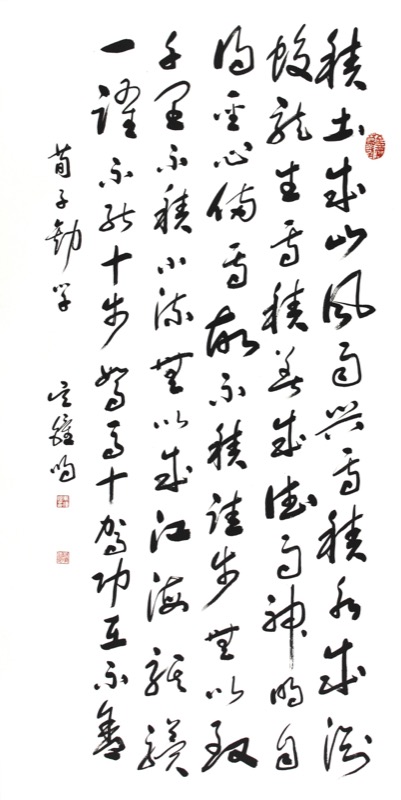 積土成山風雨興焉積水成淵
蛟龍生焉積善成德而神明自
得聖心備焉故不積跬步無以致
千里不積小流無以成江海騏驥
一躍不能十步駑馬十駕功在不舍
荀子勸學